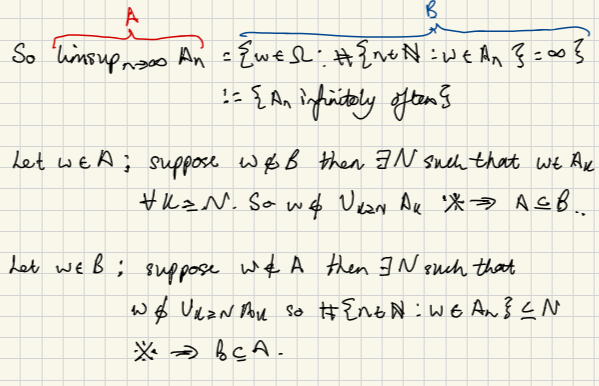 A B
So limsup_{n→∞} A_n = {ω ∈ Ω : #{n ∈ ℕ : ω ∈ A_n} = ∞}
:= {A_n infinitely often}
Let ω ∈ A ; suppose ω ∉ B then ∃ N such that ω ∈ A_k
∀ k ≥ N. So ω ∉ ∪_{k≥N} A_k ※ ⇒ A ⊆ B..
Let ω ∈ B ; suppose ω ∉ A then ∃ N such that
ω ∉ ∪_{k≥N} A_k so #{n ∈ ℕ : ω ∈ A_n} ≤ N
※ ⇒ B ⊆ A.